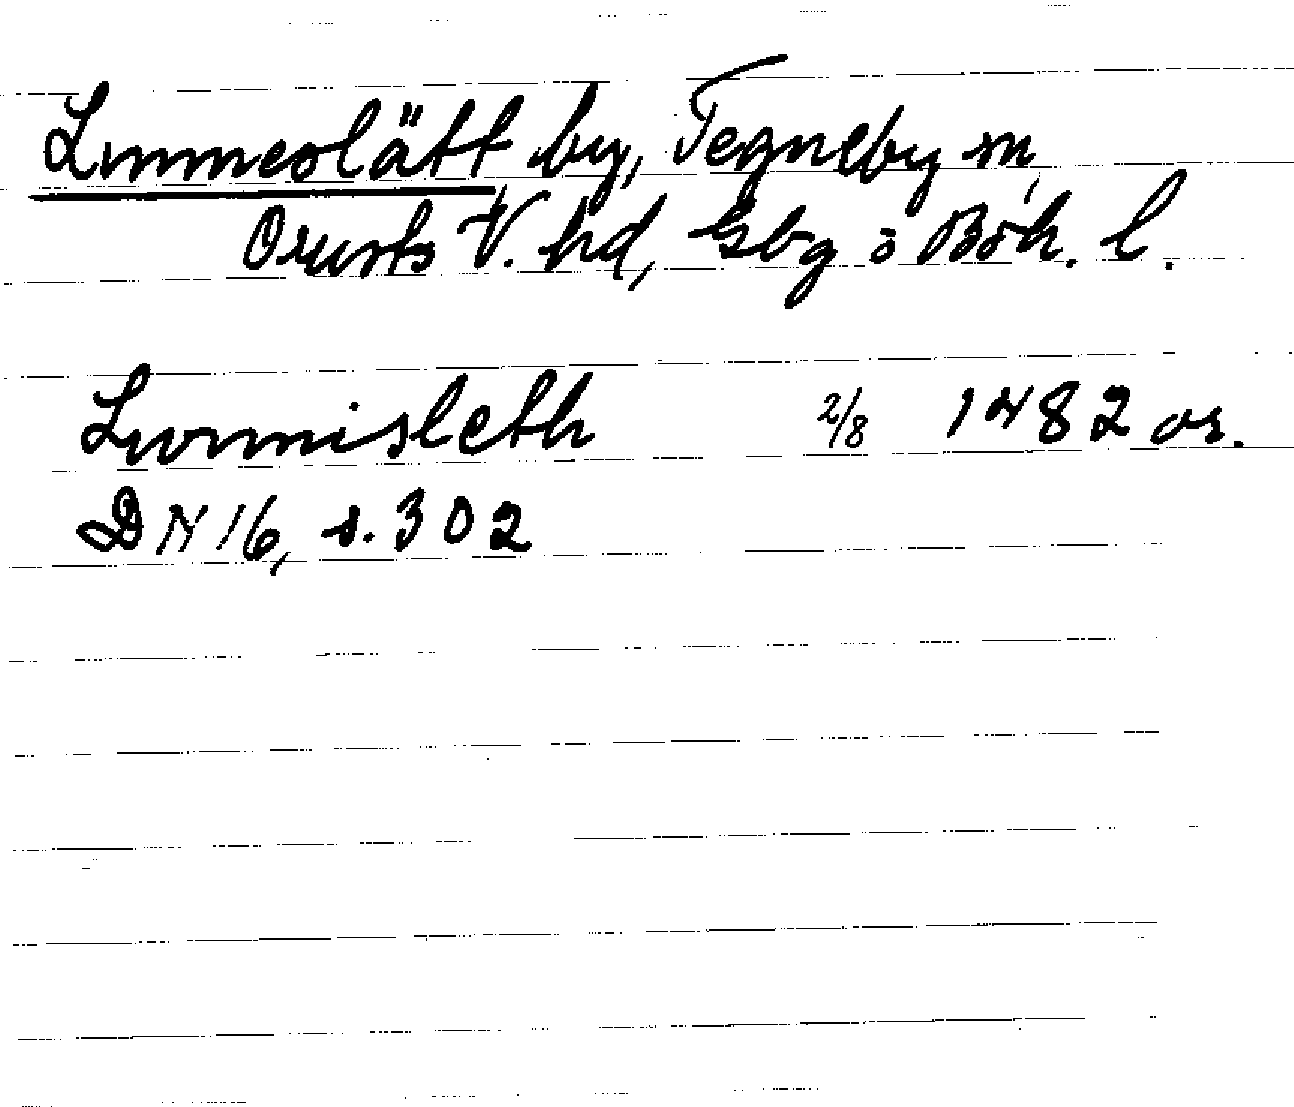 Lunneslätt by, Tegneby sn,
Orusts V. hd, Gbg o Boh. l.
Lwnnisleth 2/8 1482 or.
DN 16, s. 302